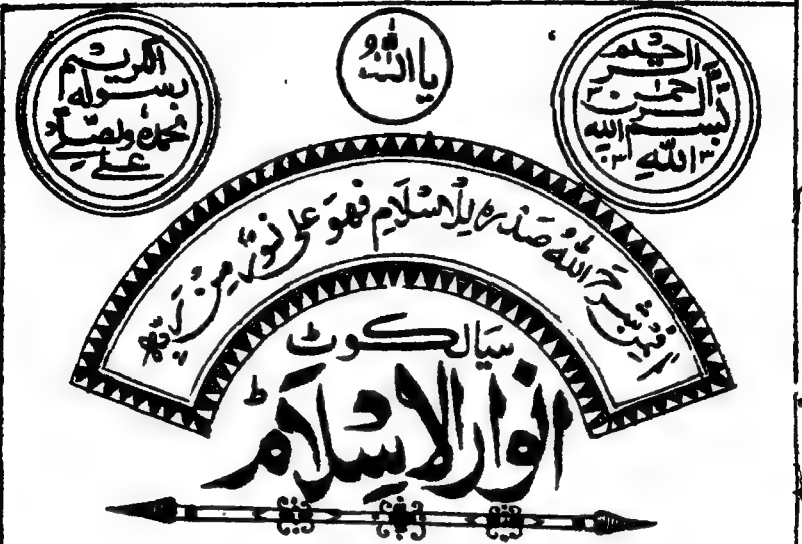 بسم الله الرحمن الرحيم
يا الله
نحمده ونصلي على رسوله الكريم
افمن شرح الله صدره للاسلام فهو على نور من ربه
سیالکوٹ
انوار الاسلام